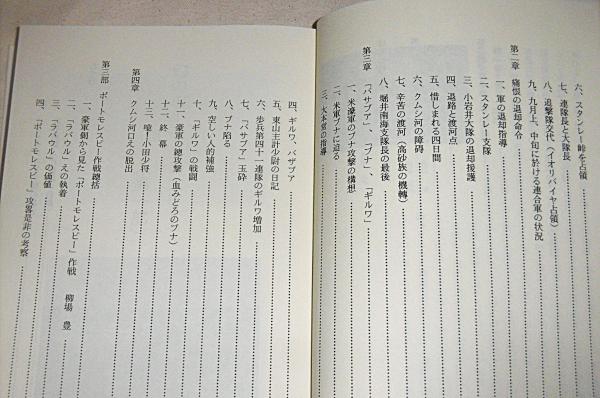 六、スタンレー峠を占領
七、連隊長と大隊長
八、追撃隊交代（イオリバイヤ占領）
九、九月上、中旬に於ける連合軍の状況
第二章　痛恨の退却命令
一、軍の退却指導
二、スタンレー支隊
三、小岩井大隊の退却援護
四、退路と渡河点
五、惜しまれる四日間
六、クムシ河の障碍
七、辛苦の渡河（高砂族の機転）
八、堀井南海支隊長の最後
第三章　「バサブア」、「ブナ」、「ギルワ」
一、米濠軍のブナ攻撃の構想
二、米軍ブナに迫る
三、大本営の指導
四、ギルワ、バザブア
五、東山主計少尉の日記
六、歩兵第四十一連隊のギルワ増加
七、「バサブア」玉砕
八、ブナ陥る
九、空しい人的補強
十、「ギルワ」の戦闘
十一、豪軍の總攻撃（血みどろのブナ）
十二、終　幕
十三、嗟！小田少将
第四章　クムシ河口えの脱出
第三部　ポートモレスビー作戦總括
一、豪軍側から見た「ポートモレスビー」作戦　柳場　豊
二、「ラバウル」えの執着
三、「ラバウル」の価値
四、「ポートモレスビー」攻畧是非の考察